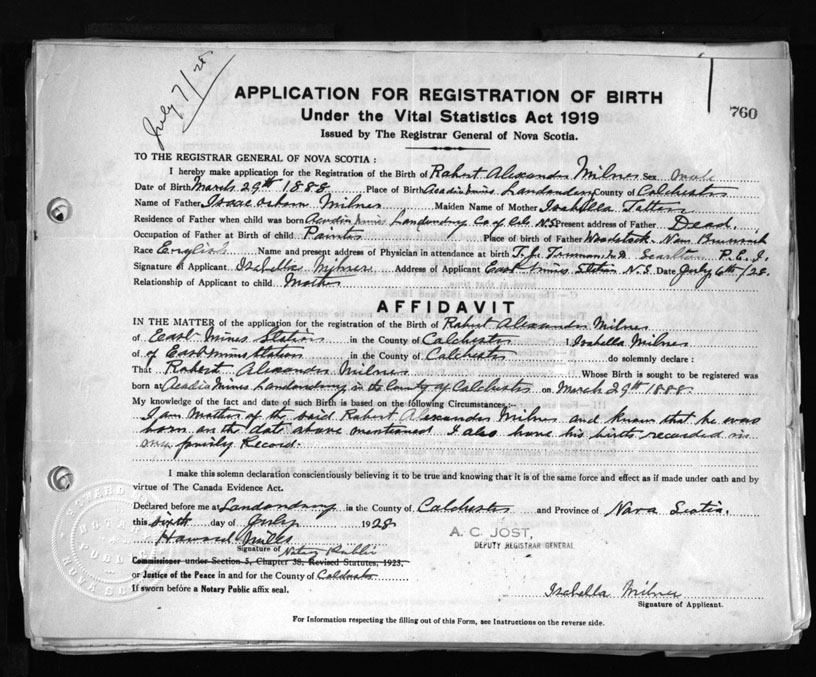 July 7/28
APPLICATION FOR REGISTRATION OF BIRTH
760
Under the Vital Statistics Act 1919
Issued by The Registrar General of Nova Scotia.
TO THE REGISTRAR GENERAL OF NOVA SCOTIA :
I hereby make application for the Registration of the Birth of Robert Alexander Milner Sex male
Date of Birth March 29th 1888 Place of Birth Acadia Mines Londonderry County of Colchester
Name of Father Isaac Osborn Milner Maiden Name of Mother Isabella
Residence of Father when child was born Acadia Mines Londonderry Co of Col. N.S. Present address of Father Dead.
Occupation of Father at Birth of child Painter Place of birth of Father Woodstock New Brunswick
Race English Name and present address of Physician in attendance at birth M.D. P.E.I.
Signature of Applicant Isabella Milner Address of Applicant East Mines Station N.S. Date July 6th/28
Relationship of Applicant to child Mother
AFFIDAVIT
IN THE MATTER of the application for the registration of the Birth of Robert Alexander Milner
of East Mines Station in the County of Colchester I, Isabella Milner
of of East Mines Station in the County of Colchester do solemnly declare :
That Robert Alexander Milner Whose Birth is sought to be registered was
born at Acadia Mines Londonderry in the County of Colchester on March 29th 1888
My knowledge of the fact and date of such Birth is based on the following Circumstances:-
I am Mother of the said Robert Alexander Milner and know that he was
born on the date above mentioned. I also have his birth recorded in
our family Record.
I make this solemn declaration conscientiously believing it to be true and knowing that it is of the same force and effect as if made under oath and by
virtue of The Canada Evidence Act.
Declared before me at Londonderry in the County of Colchester and Province of Nova Scotia.
this sixth day of July 1928
A. C. JOST,
DEPUTY REGISTRAR GENERAL
Howard Mills
Signature of Notary Public
Commissioner under Section 5, Chapter 38, Revised Statutes, 1923,
or Justice of the Peace in and for the County of Colchester
If sworn before a Notary Public affix seal.
Isabella Milner
Signature of Applicant.
For Information respecting the filling out of this Form, see Instructions on the reverse side.